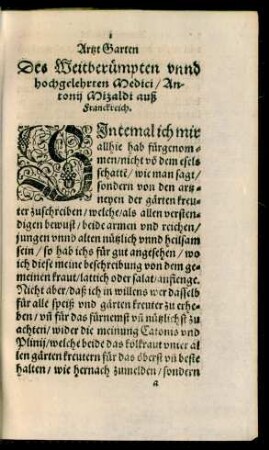 1
Artzt Garten
Des Weitberümpten vnnd
hochgelehrten Medici/ An-
tonij Mizaldi auß
Franckreich.
SIntemal ich mir
allhie hab fürgenom-
men/nicht vō dem esels
schattē/ wie man sagt/
sondern von den artz-
neyen der gärten kreu-
ter zuschreiben/ welche/ als allen versten-
digen bewust/ beide armen vnd reichen/
jungen vnnd alten nützlich vnnd heilsam
sein/ so hab ichs für gut angesehen/ wo
ich diese meine beschreibung von dem ge-
meinen kraut/ latich oder salat/ anfienge.
Nicht aber/ daß ich in willens wer dasselb
für alle speiß vnd gärten kreuter zu erhe-
ben/ vn̄ für das fürnemst vn̄ nützlichst zu
achten/ wider die meinung Catonis vnd
Plinij/ welche beide das kölkraut vnter al
len gärten kreutern für das öberst vn̄ beste
halten/ wie hernach zumelden/ sondern
a